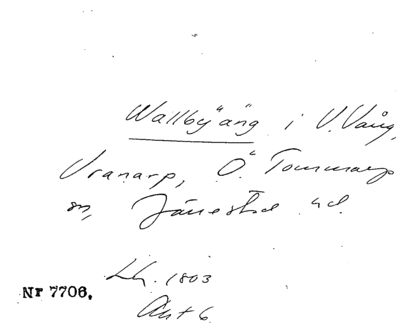 Wallby"äng i V. Vång,
Vranarp, Ö. Tommarp
sn, Järrestad hd.
Lh. 1803
Akt 6
Nr 7706.